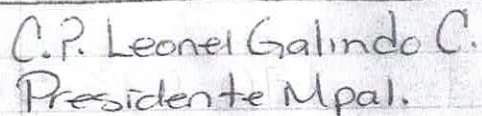 C.P. Leonel Galindo C.
Presidente Mpal.